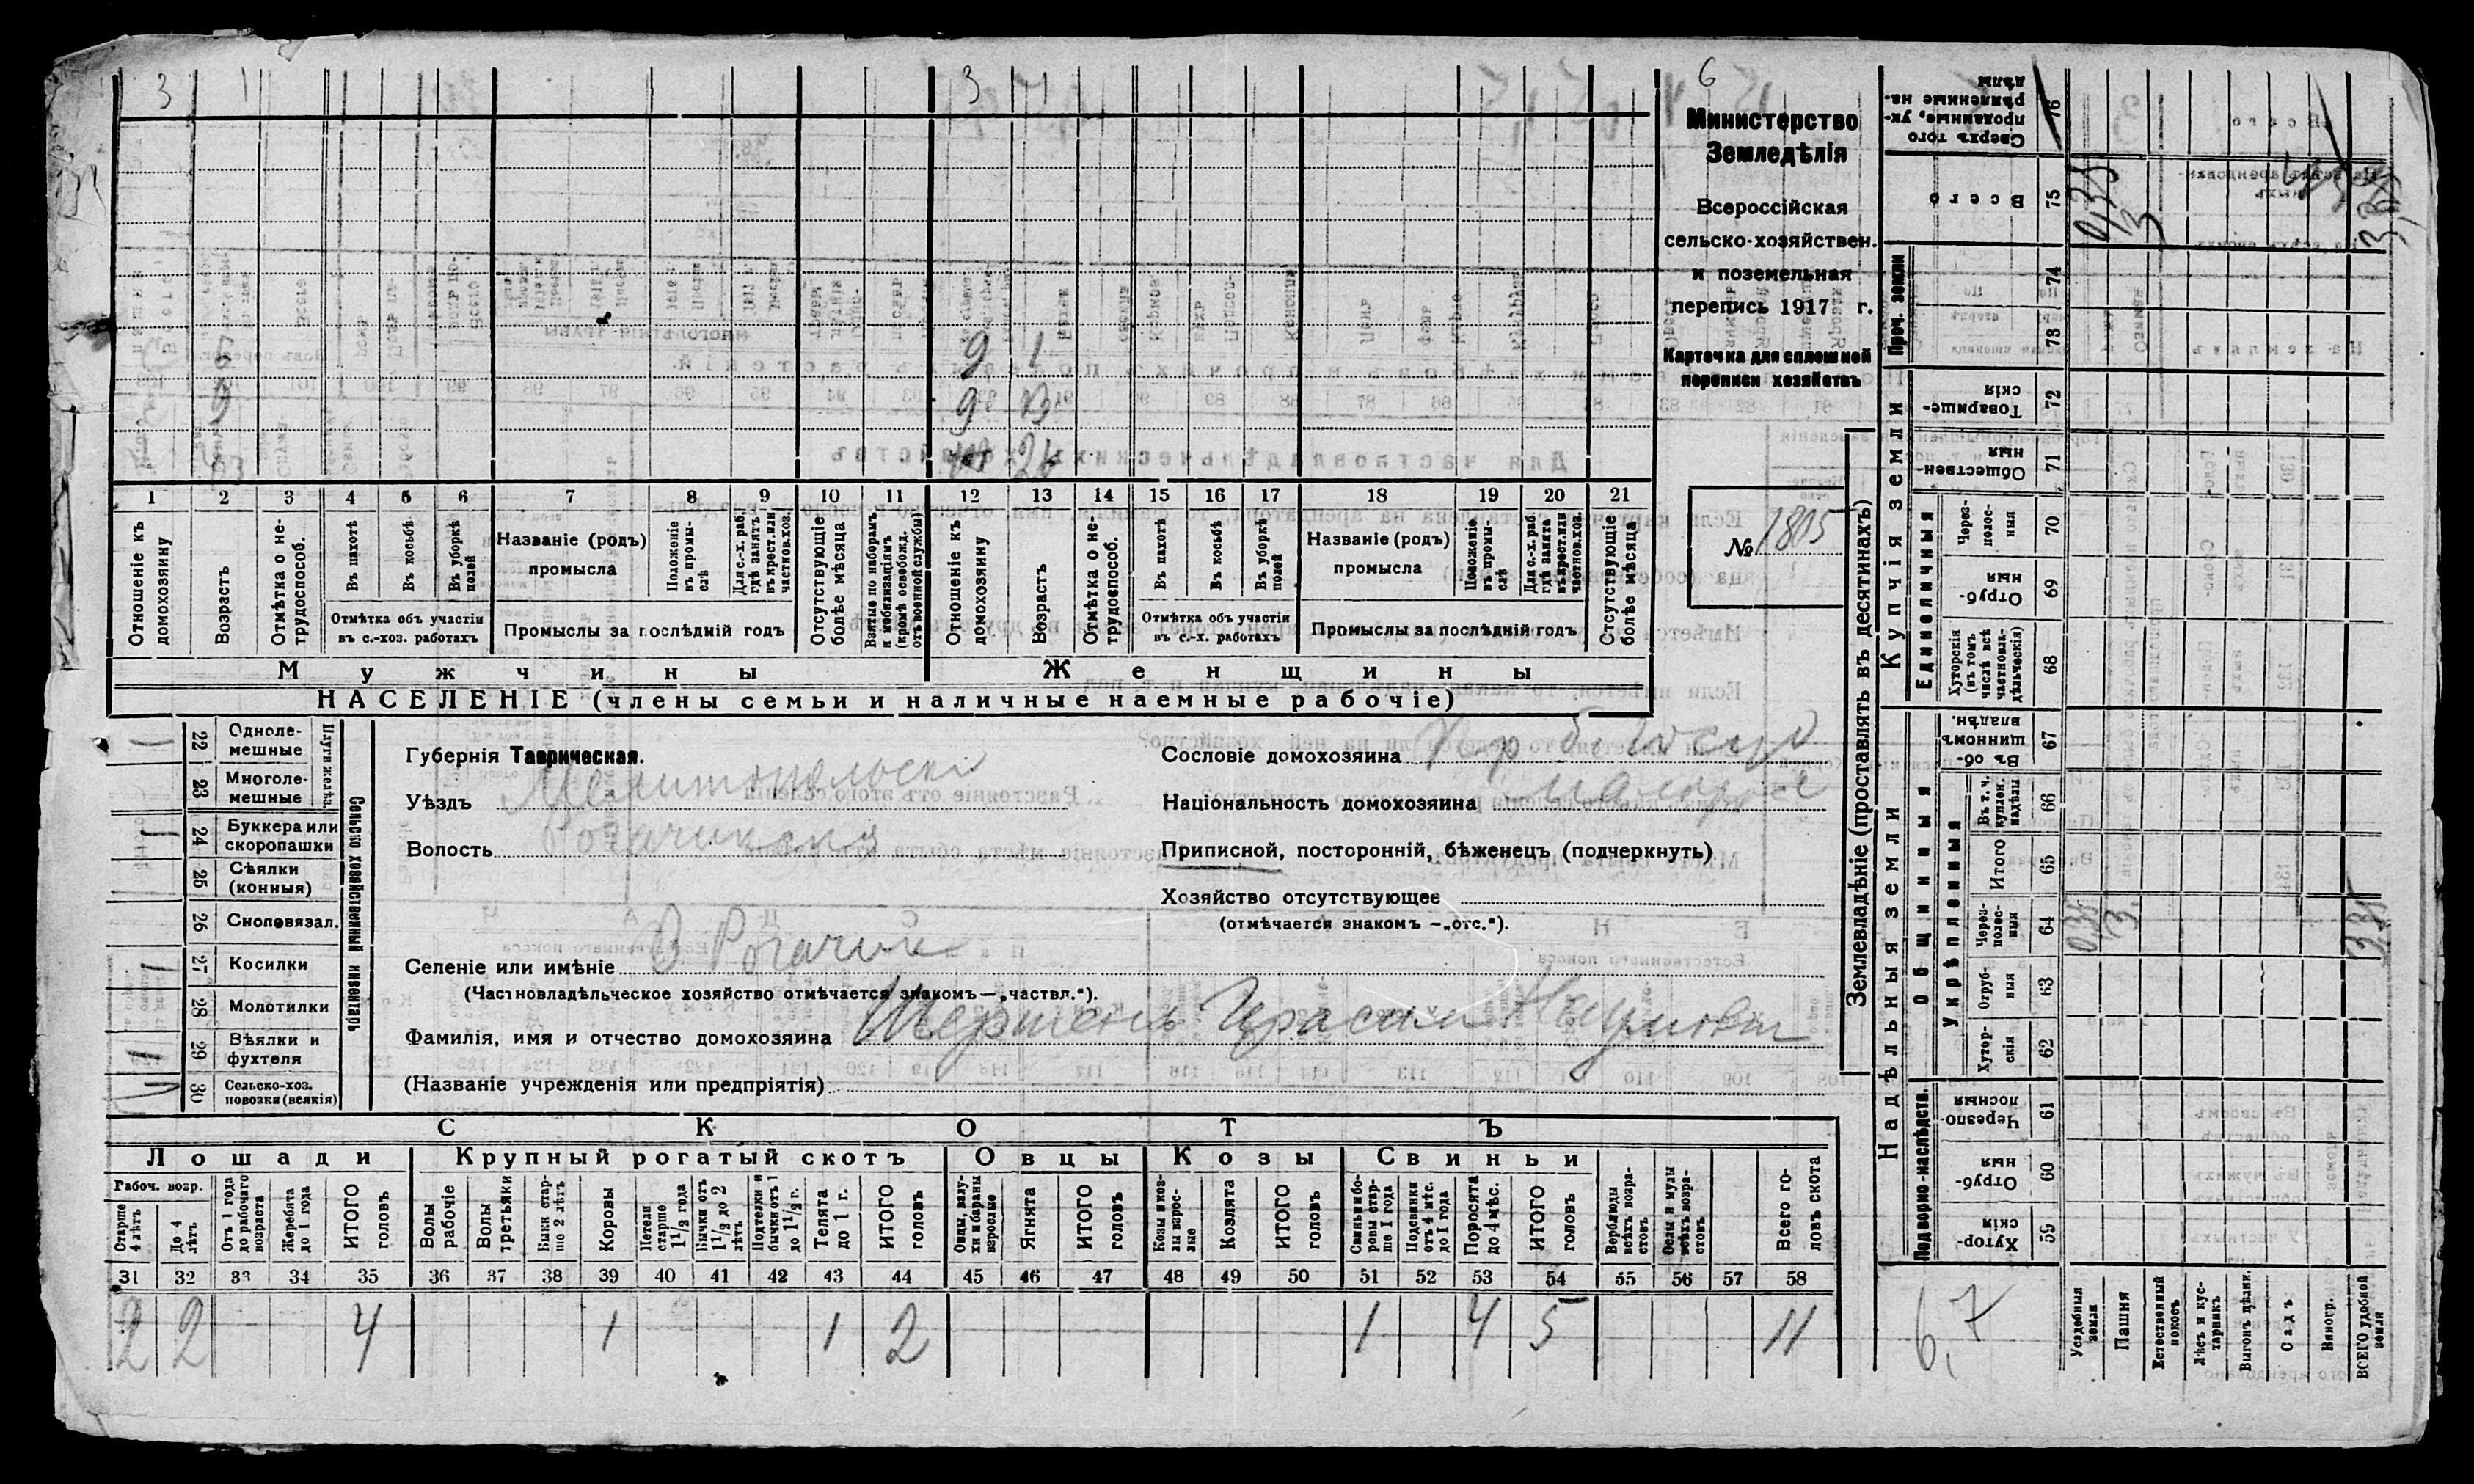 3 1 3 1 6
9 1
9 13
26
1 2 3 4 5 6 7 8 9 10 11 12 13 14 15 16 17 18 19 20 21
Отношеніе къ домохозяину
Возрастъ
Отмѣтка о не-трудоспособ.
Въ пахотѣ
Въ косьбѣ
Въ уборкѣ полей
Отмѣтка объ участіи въ с.-хоз. работахъ
Названіе (родъ) промысла
Положеніе въ промы-слѣ
Для с.-х. раб. гдѣ занятъ въ крест. или частнов. хоз.
Промыслы за послѣдній годъ
Отсутствующіе болѣе мѣсяца
Взятые по наборамъ и мобилизаціямъ (кромѣ освобожд. отъ военной службы)
Отношеніе къ домохозяину
Возрастъ
Отмѣтка о не-трудоспособ.
Въ пахотѣ
Въ косьбѣ
Въ уборкѣ полей
Отмѣтка объ участіи въ с.-х. работахъ
Названіе (родъ) промысла
Положеніе въ промы-слѣ
Для с.-х. раб. гдѣ занята въ крест. или частнов. хоз.
Промыслы за послѣдній годъ
Отсутствующіе болѣе мѣсяца
Мужчины
Женщины
НАСЕЛЕНІЕ (члены семьи и наличные наемные рабочіе)
Министерство
Земледѣлія
Всероссійская
сельско-хозяйствен.
и поземельная
перепись 1917 г.
Карточка для сплошной
переписи хозяйствъ
№ 1805
22 Одноле-мешные
23 Многоле-мешные
Плуги желѣз.
24 Буккера или скоропашки 1
25 Сѣялки (конныя)
26 Сноповязал.
27 Косилки 1
28 Молотилки
29 Вѣялки и фухтеля 1
30 Сельско-хоз. повозки (всякія)
Сельско хозяйственный инвентарь
Губернія Таврическая.
Уѣздъ Мелитопольскі
Волость Рогачикская
Селеніе или имѣніе В Рогачик
(Частновладѣльческое хозяйство отмѣчается знакомъ—„частвл.“).
Фамилія, имя и отчество домохозяина Шершень Герасим Наумовъ
(Названіе учрежденія или предпріятія)
Сословіе домохозяина Кр
Національность домохозяина малорос
Приписной, посторонній, бѣженецъ (подчеркнуть)
Хозяйство отсутствующее
(отмѣчается знакомъ —„отс.“).
СКОТЪ
Лошади
Крупный рогатый скотъ
Овцы
Козы
Свиньи
Рабоч. возр.
Старше 4 лѣтъ
До 4 лѣтъ
Отъ 1 года до рабочаго возраста
Жеребята до 1 года
ИТОГО головъ
Волы рабочіе
Волы третьяки
Быки стар-ше 2 лѣтъ
Коровы
Нетели старше 1 1/2 года
Бычки отъ 1 1/2 до 2 лѣтъ
Подтелки и бычки отъ 1 до 1 1/2 г.
Телята до 1 г.
ИТОГО головъ
Овцы, валу-хи и бараны взрослые
Ягнята
ИТОГО головъ
Козы и коз-лы взрос-лые
Козлята
ИТОГО головъ
Свиньи и бо-ровы стар-ше 1 года
Подсвинки отъ 4 мѣс. до 1 года
Поросята до 4 мѣс.
ИТОГО головъ
Верблюды всѣхъ возра-стовъ
Ослы и мулы всѣхъ возра-стовъ
Всего го-ловъ скота
31 32 33 34 35 36 37 38 39 40 41 42 43 44 45 46 47 48 49 50 51 52 53 54 55 56 57 58
2 2 4 1 1 2 1 4 5 11
Землевладѣніе (проставлять въ десятинахъ)
Сверхъ того проданные, ук-рѣпленные на-дѣлы 76
Всего 75
Проч. земли 74 73
Купчія земли
Товарище-скія 72
Обществен-ныя 71
Единоличныя
Через-полос-ныя 70
Отруб-ныя 69
Хуторскія (въ томъ числѣ всѣ частновла-дѣльческія) 68
Надѣльныя земли
Общинныя
Въ об-щинномъ владѣн. 67
Укрѣпленныя
Въ т. ч. куплен. надѣлы 66
Итого 65
Через-полос-ныя 64
Отруб-ныя 63
Хутор-скія 62
Подворно-наслѣдств.
Черезпо-лосныя 61
Отруб-ныя 60
Хутор-скія 59
Усадебная земля
Пашня
Естественный покосъ
Лѣсъ и кус-тарникъ
Выгонъ цѣлик.
Садъ
Виногр.
ВСЕГО удобной земли
0,35 3 3,35
0,35 3 3,35
6,7